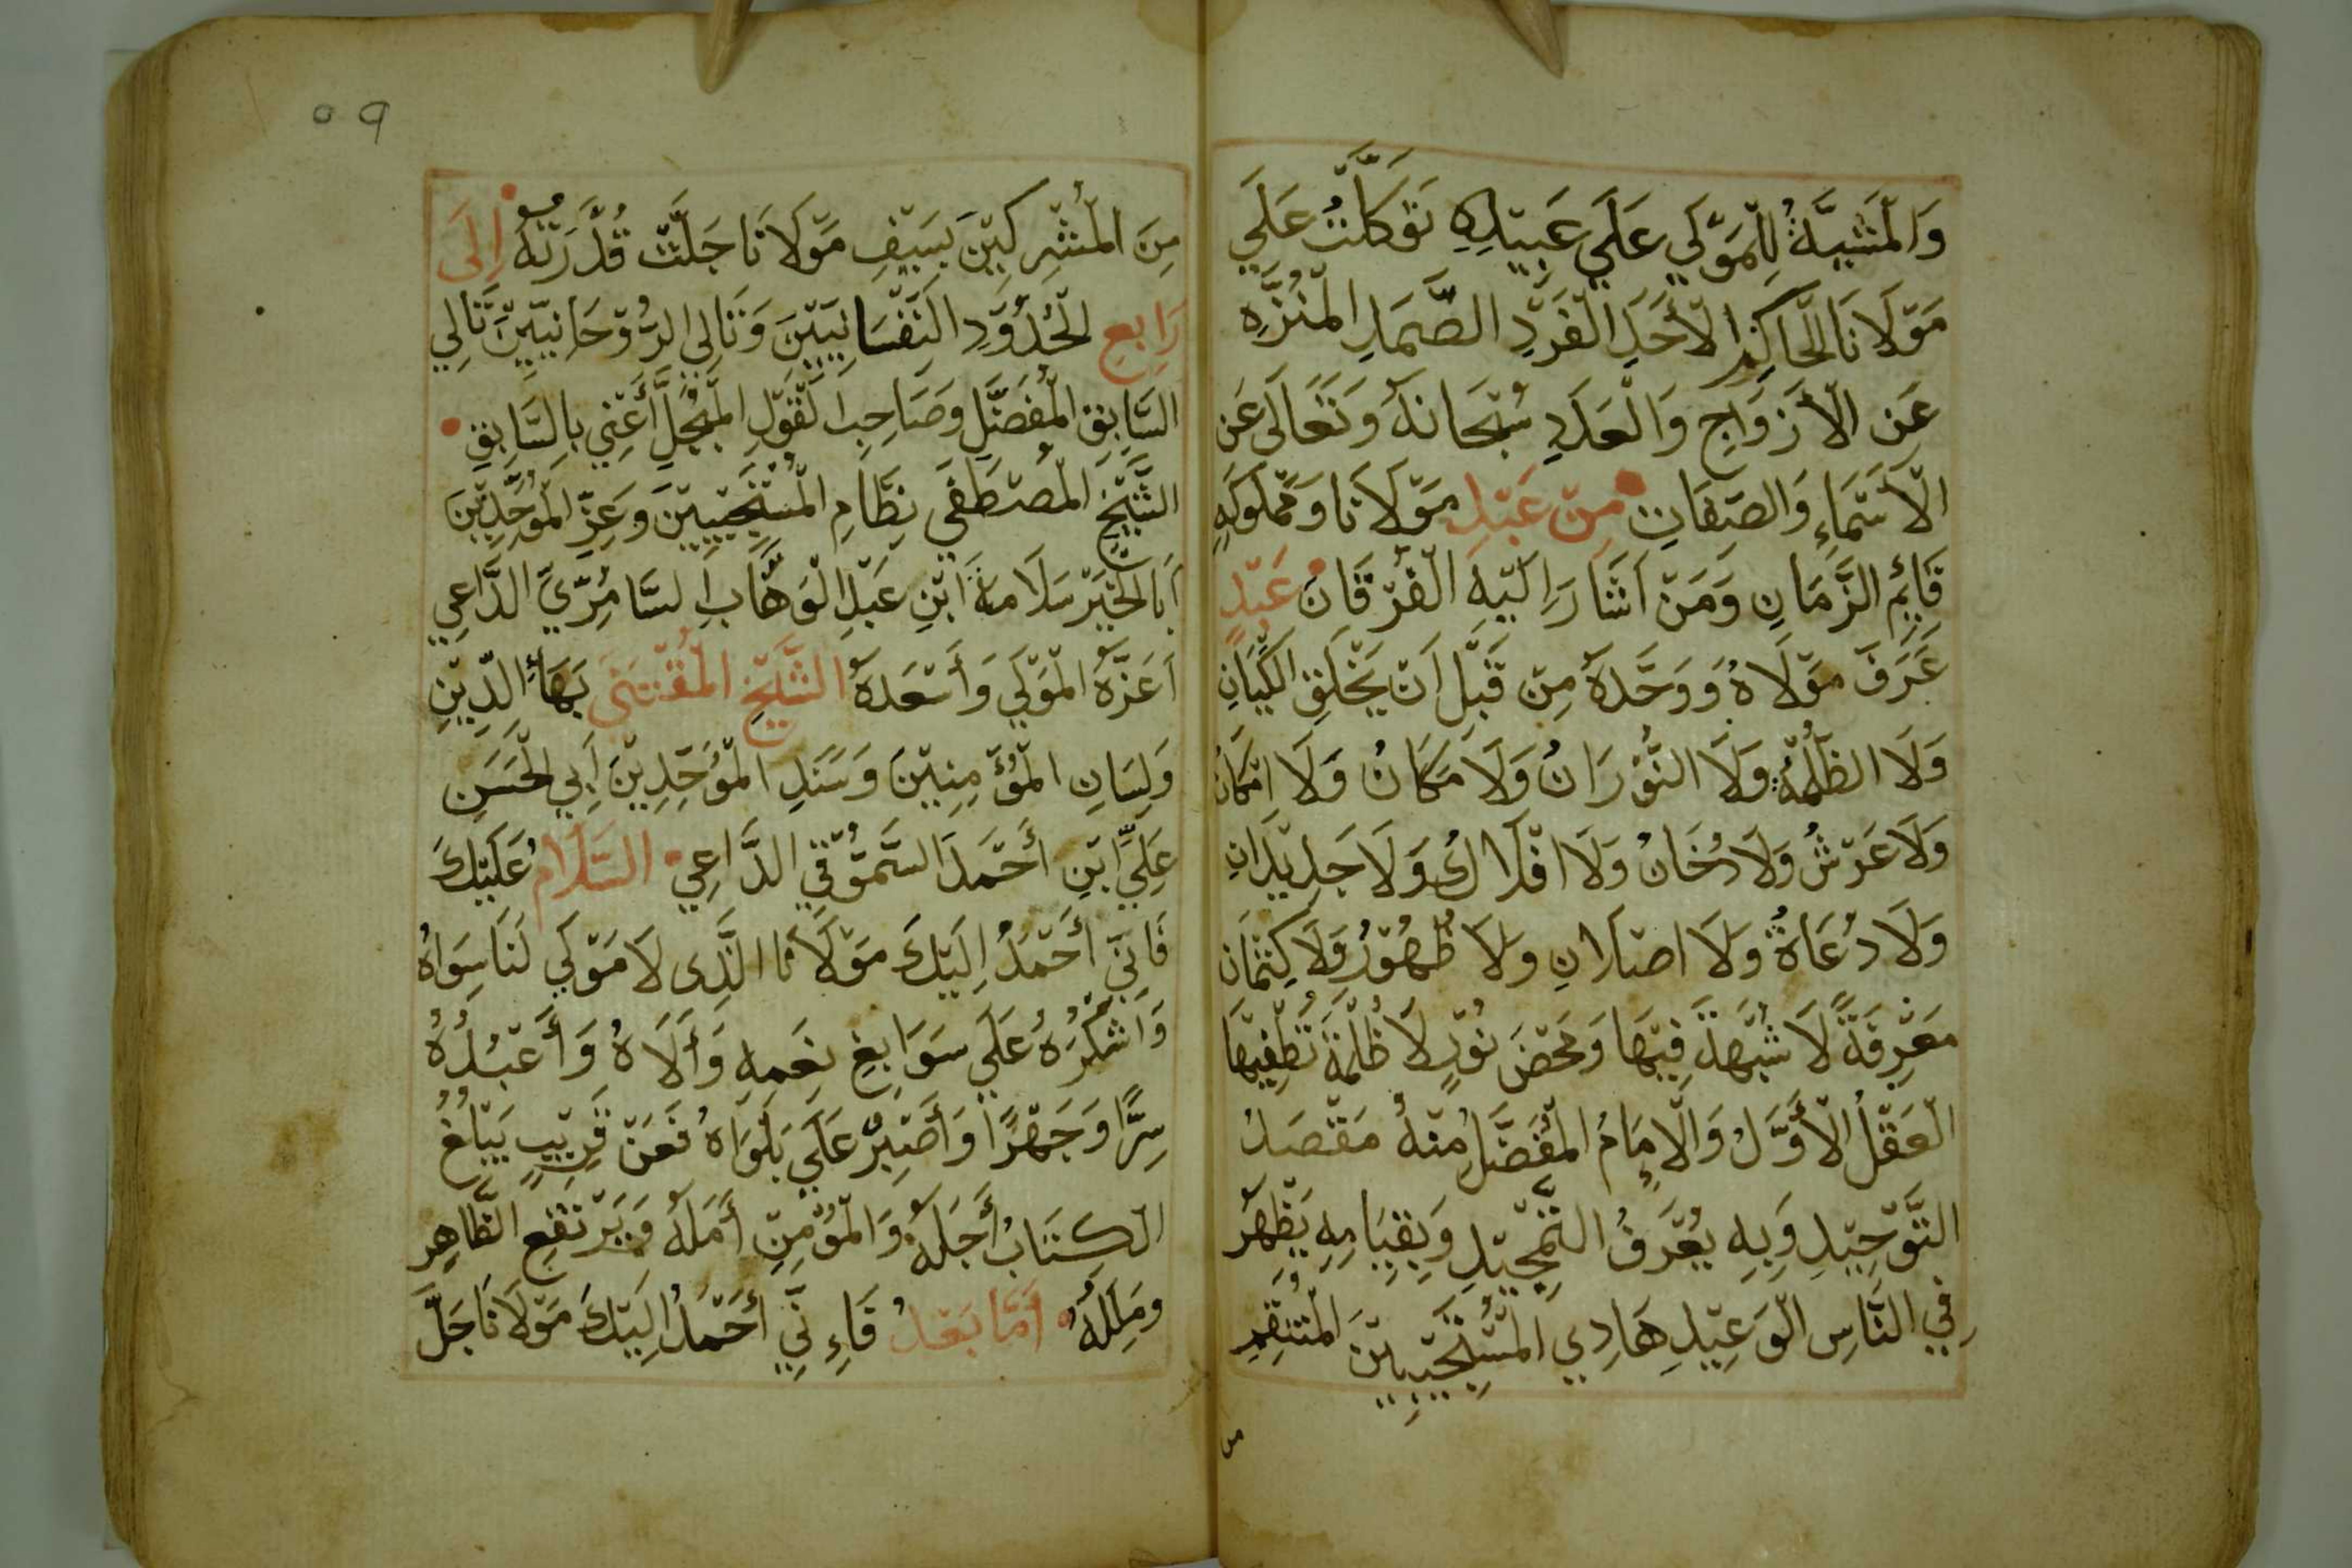 وَالْمَشِيَّةُ لِلْمَوْلَي عَلَي عَبِيْدِهِ تَوَكَّلْتُ عَلَي
مَوْلَانَا الْحَاكِمِ الْأَحَدِ الْفَرْدِ الصَّمَدِ الْمُنَزَّهِ
عَنِ الْأَزْوَاجِ وَالْعَدَدِ سُبْحَانَهُ وَتَعَالَى عَنِ
الْأَسْمَاءِ وَالصِفَاتِ مِنْ عَبْدِ مَوْلَانَا وَمَمْلُوكِهِ
قَايِمِ الزَّمَانِ وَمَنْ اَشَارَ اِلَيْهِ الْفُرْقَانَ عَبْدٍ
عَرَفَ مَوْلَاهُ وَوَحَّدَهُ مِنْ قَبْلِ اَنْ يَخْلِقَ الكِيَانِ
وَلَا الظُلْمَةِ وَلَا النُّوْرَانُ وَلَا مَكَانُ وَلَا امْكَانُ
وَلَا عَرْشُ وَلَا دُخَانُ وَلَا افْلَاكُ وَلَا جَدِيْدَانِ
وَلَا دُعَاةُ وَلَا اصْلَانِ وَلَا ظُهُوْرُ وَلَا كِتْمَان
مَعْرِفَةً لَا شُبْهَةَ فِيْهَا وَمَحْضَ نُوْرٍ لَا ظُلْمَةَ تُطْفِيْهَا
الْعَقْلُ الْأَوَّلُ وَالْإِمَامُ الْمُفَضَّلُ مِنْهُ مَقْصَدُ
التَّوْحِيْدِ وَبِهِ يُعْرَفُ التَّمْجِيْدِ وَبِقِيَامِهِ يَظْهَرُ
فِي النَّاسِ الْوَعِيْدِ هَادِي الْمُسْتَجِيْبِيْنَ الْمُنْتَقِمِ
من
٥٩
مِنَ الْمُشْرِكِيْنَ بِسَيْفِ مَوْلَانَا جَلَّتْ قُدْرَتُهُ اِلَى
رَابِعِ الْحُدُوْدِ النَفْسَانِيِيْنَ وَتَالِي الرُوْحَانِيِّيْنَ تَالِي
السَّابِقِ الْمُفَضَّلِ وَصَاحِبِ الْقَوْلِ الْمُبَجَّلِ أَعْنِي بِالسَّابِقِ
الشَّيْخِ الْمُصْطَفَي نِظَامِ الْمُسْتَجِيْبِيْنَ وَعِزِّ الْمُوَحِّدِيْنَ
اَبَا الْخَيْرِ سَلَامَةَ ابْنِ عَبْدِ الْوَهَّابِ السَّامُرِّيِّ الدَّاعِي
اَعَزَّهُ الْمَوْلَي وَأَسْعَدَهُ الشَّيْخِ الْمُقْتَنَى بَهَأِ الدِّيْنِ
وَلِسَانِ الْمُؤْمِنِيْنَ وَسَنَدِ الْمُوَحِّدِيْنَ أَبِي الْحَسَنِ
عَلِيِّ ابْنِ أَحْمَدَ السَّمُّوْقِي الدَّاعِي السَّلَامُ عَلَيْكَ
فَانِّي أَحْمَدُ اِلَيْكَ مَوْلَانَا الَّذِى لَا مَوْلَي لَنَا سِوَاهُ
وَاشْكُرُهُ عَلَي سَوَابِغِ نِعَمِهِ وَأَلَاهُ وَأَعْبُدُهُ
سِرًّا وَجَهْرًا وَأَصْبِرُ عَلَي بَلْوَاهُ فَعَنْ قَرِيْبٍ يَبْلُغُ
الْكِتَابُ أَجَلَهُ وَالْمُؤْمِنِ أَمَلَهُ وَيَرْتَفِعِ الظَّاهِرِ
وَمِلَلُهُ أَمَّا بَعْدُ فَاءِنِّي أَحْمَدُ اِلَيْكَ مَوْلَانَا جَلَّ